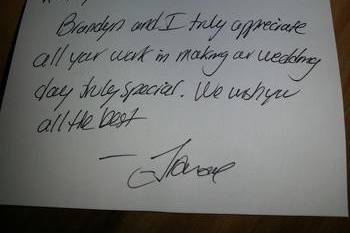 Brandyn and I truly appreciate
all your work in making our wedding
day truly special. We wish you
all the best